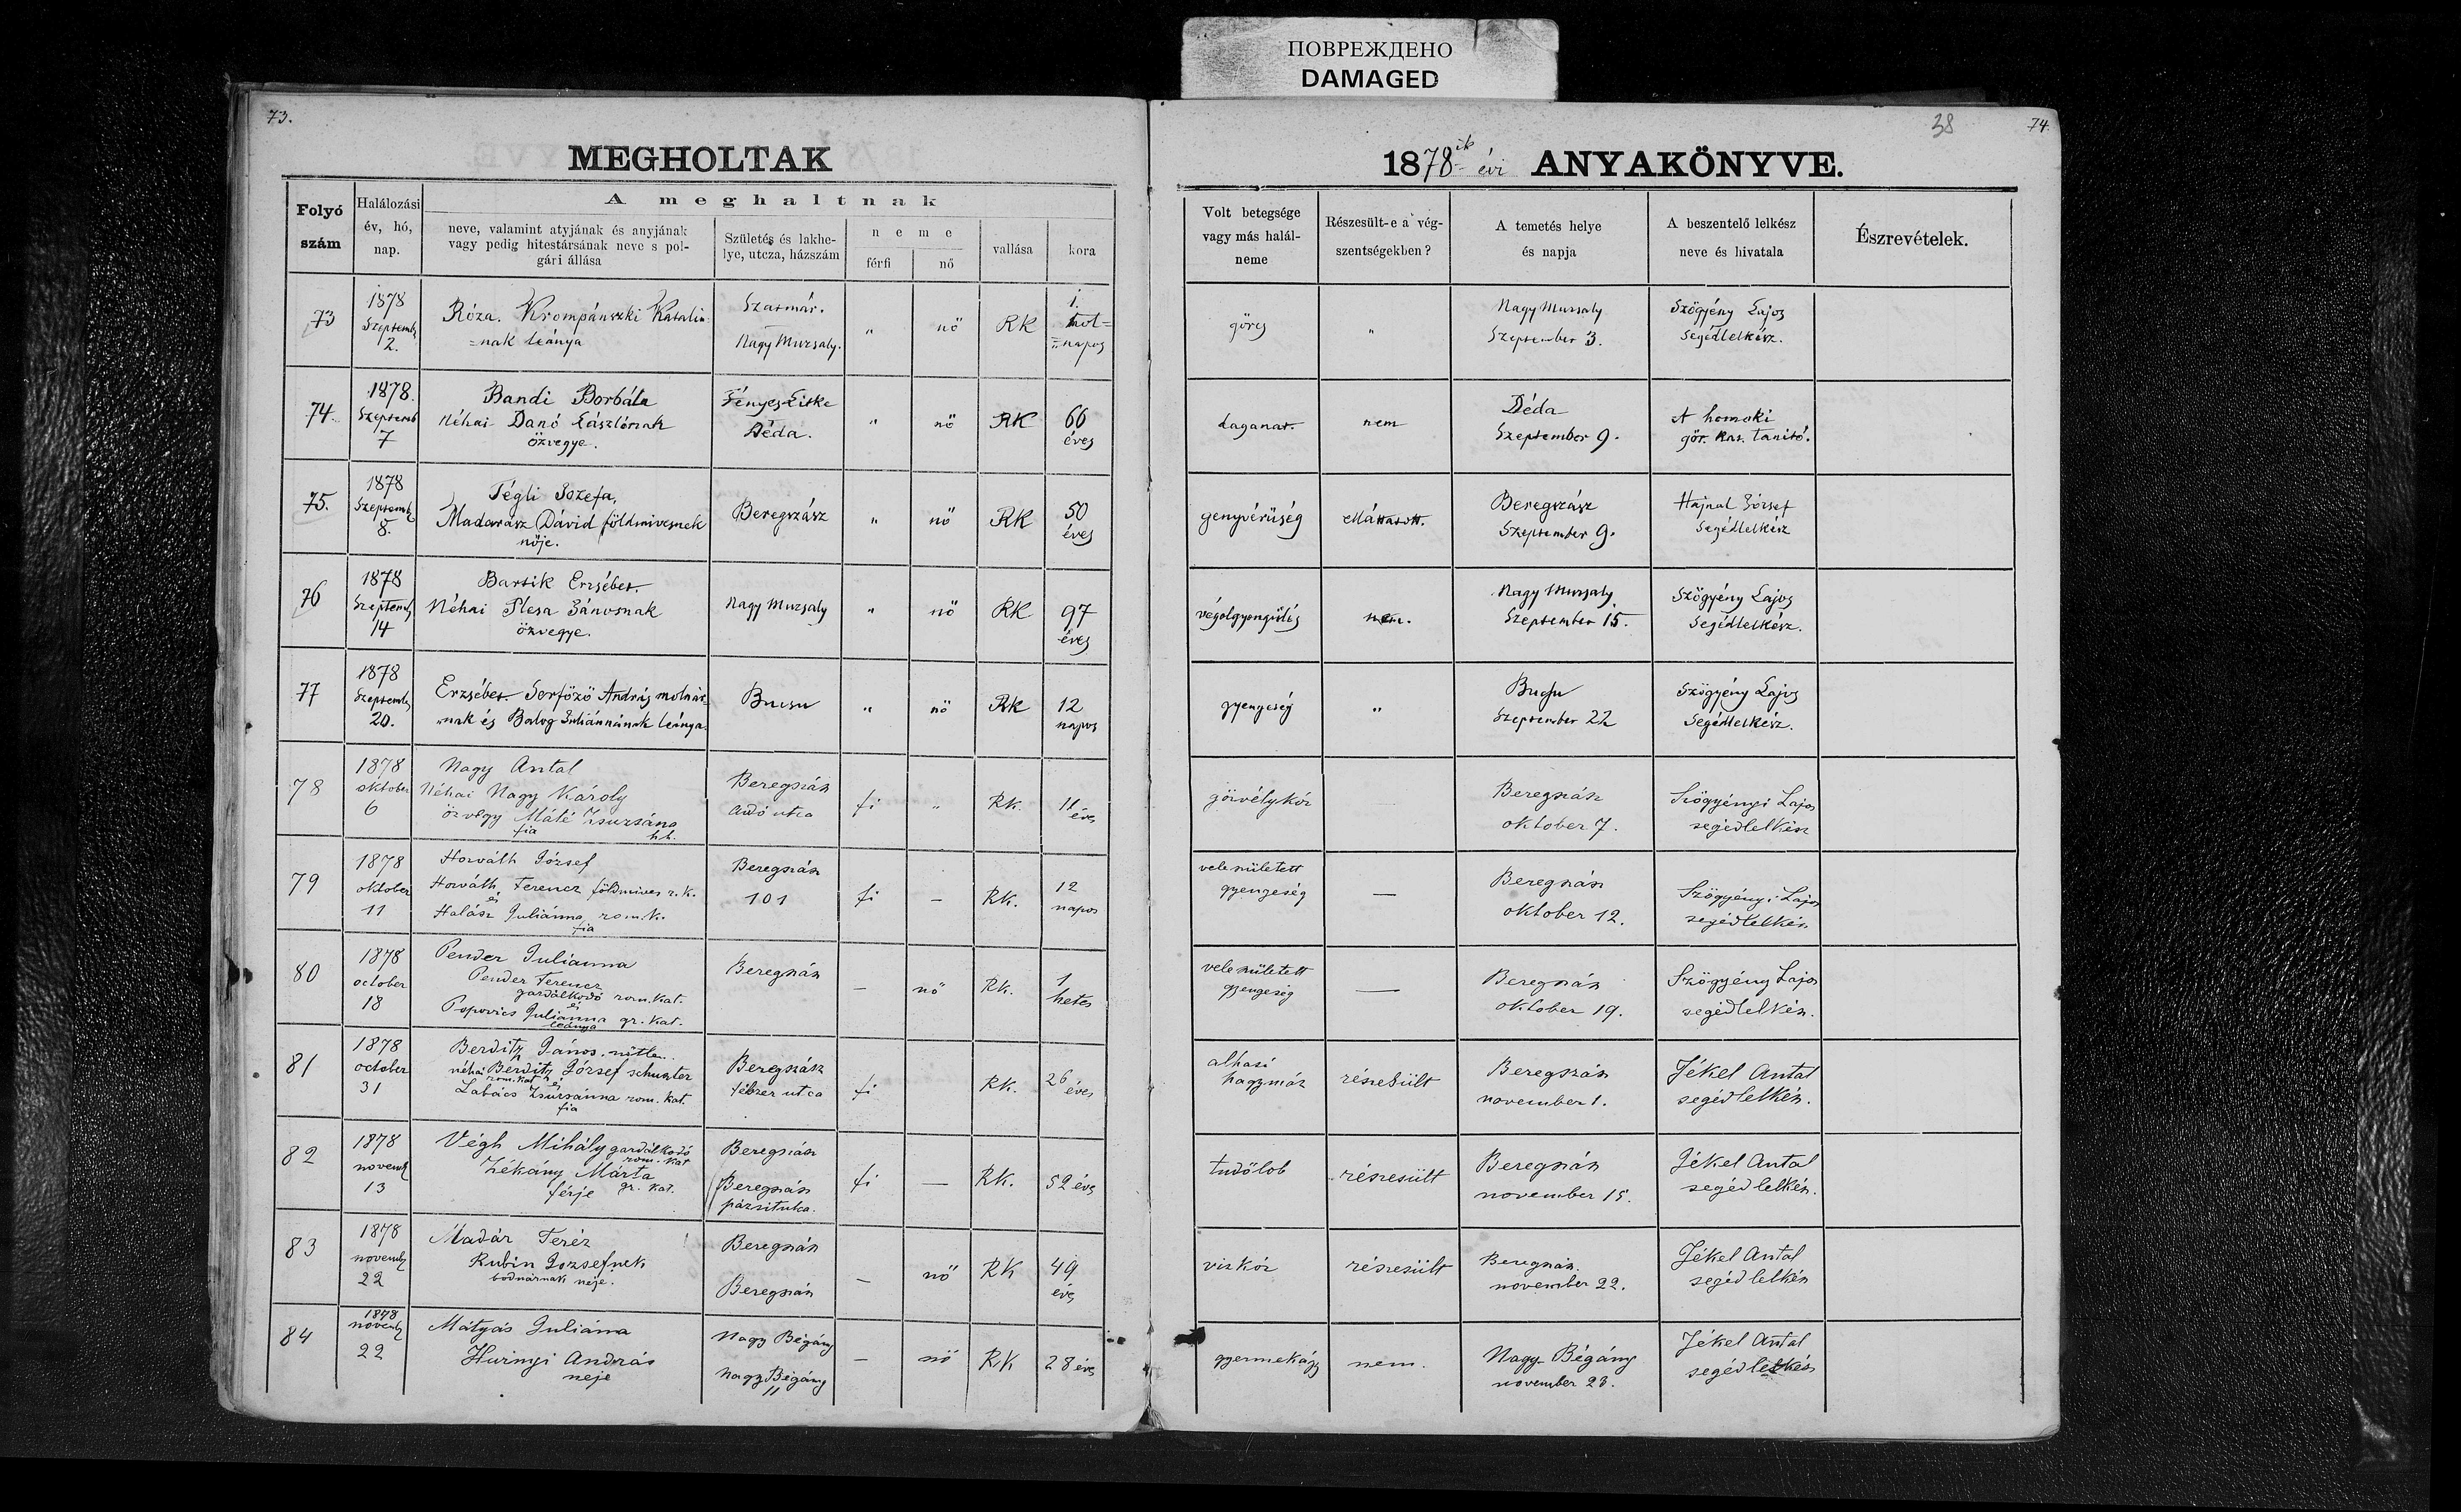 ПОВРЕЖДЕНО
DAMAGED
73.
38
74.
MEGHOLTAK
1878ik évi ANYAKÖNYVE.
Folyó szám
Halálozási év, hó, nap.
A meghaltnak
neve, valamint atyjának és anyjának
vagy pedig hitestársának neve s pol-
gári állása
Születés és lakhe-
lye, utcza, házszám
neme
férfi
nő
vallása
kora
Volt betegsége
vagy más halál-
neme
Részesült-e a vég-
szentségekben?
A temetés helye
és napja
A beszentelő lelkész
neve és hivatala
Észrevételek.
73
1878
Septemb
2.
Róza. Krompánszki Katalin
=nak leánya
Szatmár.
Nagy Muzsaly.
"
nő
RK
1.
napos
görcs
"
Nagy Muzsaly
September 3.
Szögyény Lajos
Segédlelkész.
74.
1878.
Szeptemb
7
Bandi Borbála
Néhai Danó Lászlónak
özvegye.
Fényes Litke
Déda.
"
nő
RK
66
éves
daganat.
nem
Déda
Szeptember 9.
A homoki
gör. kat. tanító.
75.
1878
Szeptemb
8.
Tégli Jozefa,
Madarász Dávid földmivesnek
nője.
Beregszász
"
nő
RK
50
éves
genyvérüség
elláttatott.
Beregszász
Szeptember 9.
Hajnal József
Segédlelkész
76
1878
Szeptemb
14
Bartik Erzsébet.
Néhai Plesa Jánosnak
özvegye.
Nagy Muzsaly
"
nő
RK
97
éves
végelgyengülés
nem.
Nagy Muzsaly
Szeptember 15.
Szögyény Lajos
Segédlelkész.
77
1878
Szeptemb
20.
Erzsébet Serfőző András molnár=
=nak és Balog Juliánnának leánya.
Bucsu
"
nő
RK
12
napos
gyengeség
"
Bucsu
Szeptember 22
Szögyény Lajos
Segédlelkész.
78
1878
oktober
6
Nagy Antal
Néhai Nagy Károly
özvegy Máté Zsuzsána
fia
Beregszász
Andó utca
fi
"
RK.
11
éves
görvélykór
Beregszász
oktober 7.
Szögyényi Lajos
segédlelkész
79
1878
oktober
11
Horváth József
Horváth Ferencz földmives r. k.
és
Halász Juliánna rom. k.
fia
Beregszász
101
fi
–
RK.
12
napos
vele született
gyengeség
—
Beregszász
oktober 12.
Szögyényi Lajos
segédlelkész
80
1878
october
18
Pender Julianna
Pender Ferencz
gazdálkodó rom. kat.
és
Popovics Julianna gr. kat.
leánya
Beregszász
–
nő
RK.
1
hetes
vele született
gyengeség
—
Beregszász
oktober 19.
Szögyény Lajos
segédlelkész.
81
1878
october
31
Berditz János. nőtlen.
néhai Berditz József schuszter
rom. kat. és
Labács Zsuzsánna rom. kat.
fia
Beregszász
fi
RK.
26
éves
alhasi
hagymáz
részesült
Beregszász
november 1.
Jékel Antal
segédlelkész.
82
1878
novemb
13
Végh Mihály gazdálkodó
rom. kat
Zékány Márta
férje gr. kat.
Beregszász
Beregszász
fi
—
RK.
52 éves
tüdőlob
részesült
Beregszász
november 15.
Jékel Antal
segédlelkész.
83
1878
novemb
22
Madár Teréz
Rubin Jozsefnek
bodnárnak neje.
Beregszász
Beregszász
–
nő
RK
49
éves
vizkór
részesült
Beregszász.
november 22.
Jékel Antal
segédlelkész
84
1878
novemb
22
Mátyás Juliána
András
neje
Nagy Bégány
Nagy Bégány
11
–
nő
RK
28 éves
gyermekágy
nem.
Nagy-Bégány
november 23.
Jékel Antal
segédlelkész